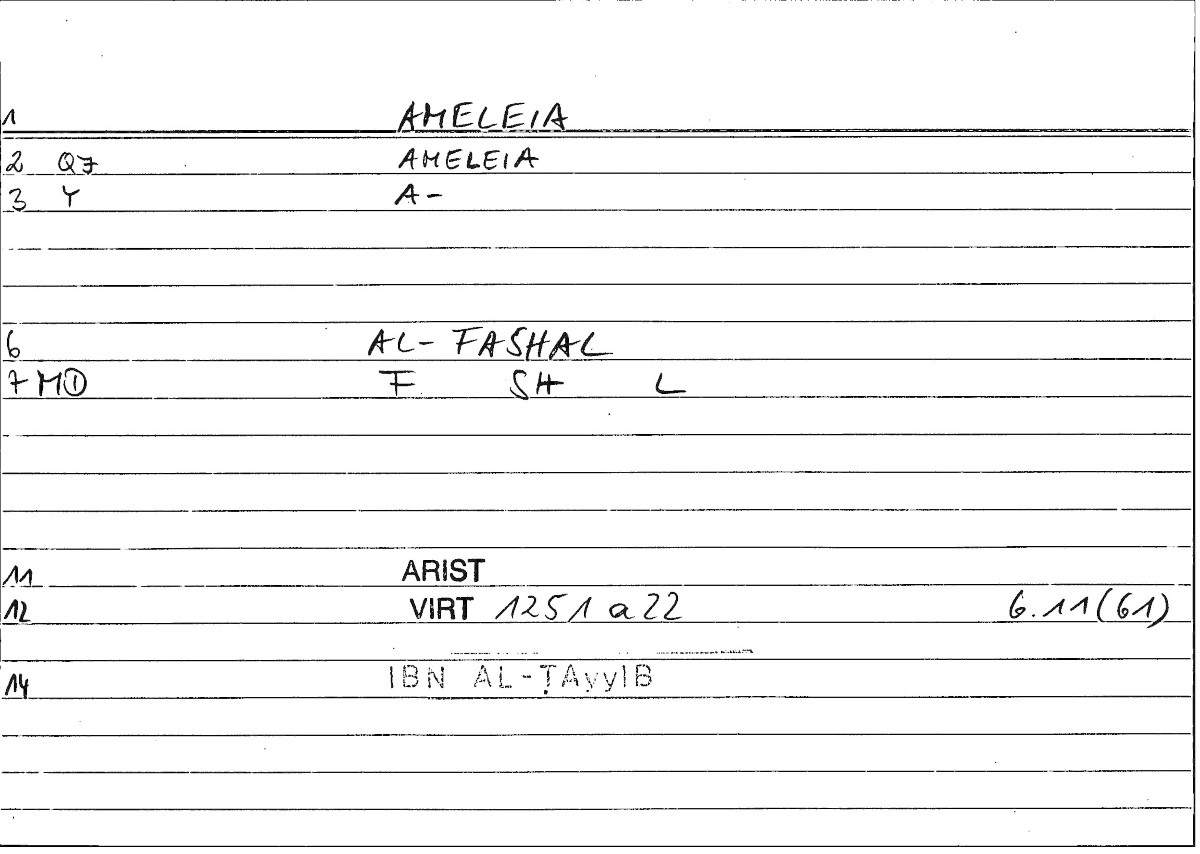 1 AMELEIA
2 Q7 AMELEIA
3 Y A-
6 AL-FASHAL
7 M① F SH L
11 ARIST
12 VIRT 1251 a 22 6.11(61)
14 IBN AL-ṬAyyIB